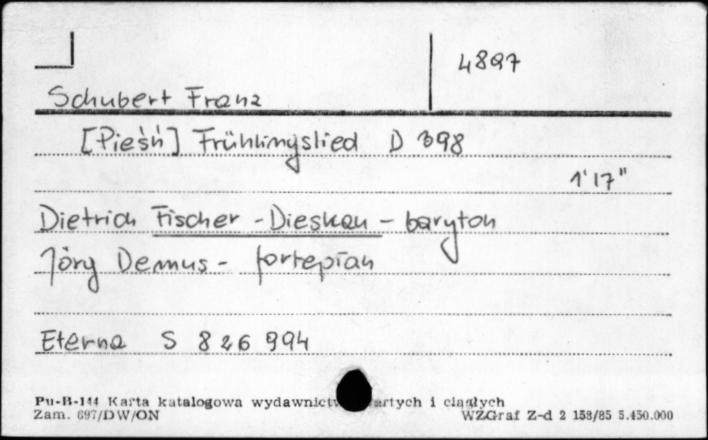 4897
Schubert Franz
[Pieśń] Frühlingslied D 398
1'17"
Dietrich Fischer - Dieskau - baryton
Jörg Demus - fortepian
Eterna S 8 26 994
Pu-B-144 Karta katalogowa wydawnict artych i ciągłych
Zam. 697/DW/ON WZGraf Z-d 2 158/85 5.450.000